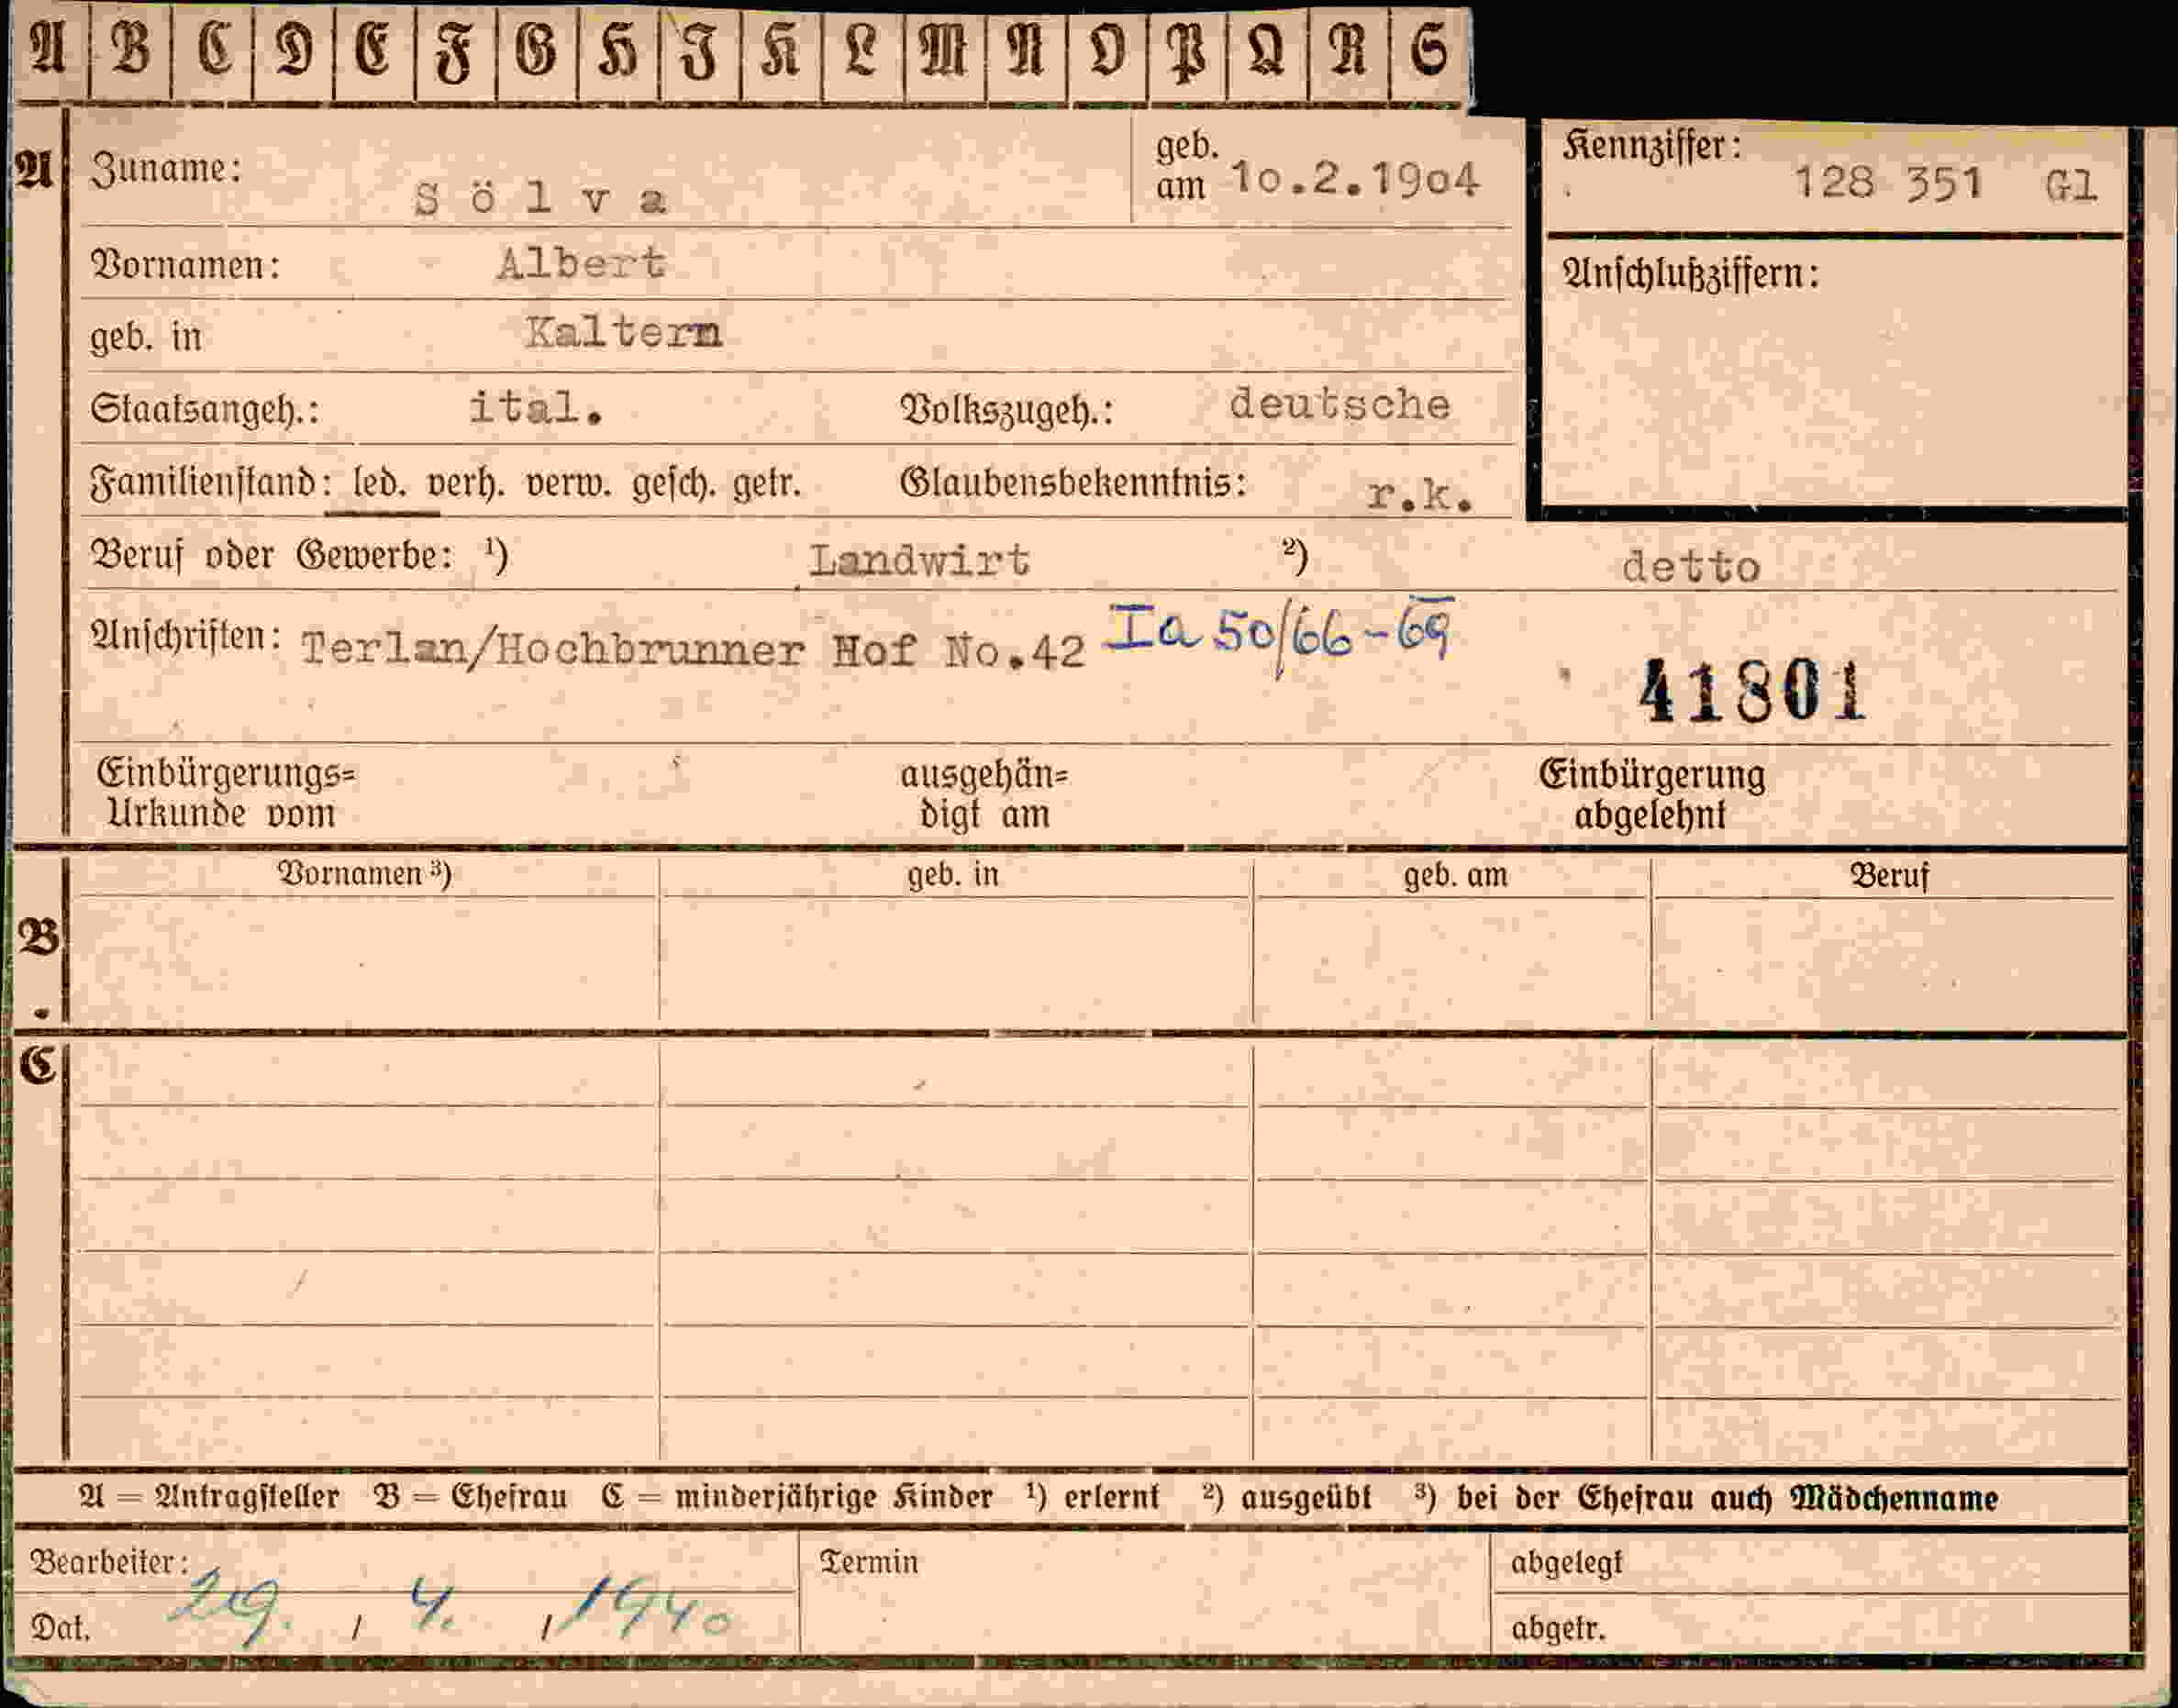 A B C D E F G H I K L M N O P Q R S
A Zuname: Sölva geb. am 10.2.1904 Kennziffer: 128 351 Gl
Vornamen: Albert Anschlußziffern:
geb. in Kaltern
Staatsangeh.: ital. Volkszugeh.: deutsche
Familienstand: led. verh. verw. gesch. getr. Glaubensbekenntnis: r.k.
Beruf oder Gewerbe: ¹) Landwirt ²) detto
Anschriften: Terlan/Hochbrunner Hof No.42 Ia 50/66-69
41801
Einbürgerungs= ausgehän= Einbürgerung
Urkunde vom digt am abgelehnt
Vornamen ³) geb. in geb. am Beruf
B
C
A = Antragsteller B = Ehefrau C = minderjährige Kinder ¹) erlernt ²) ausgeübt ³) bei der Ehefrau auch Mädchenname
Bearbeiter: Termin abgelegt
Dat. 29. / 4. / 1940 abgetr.